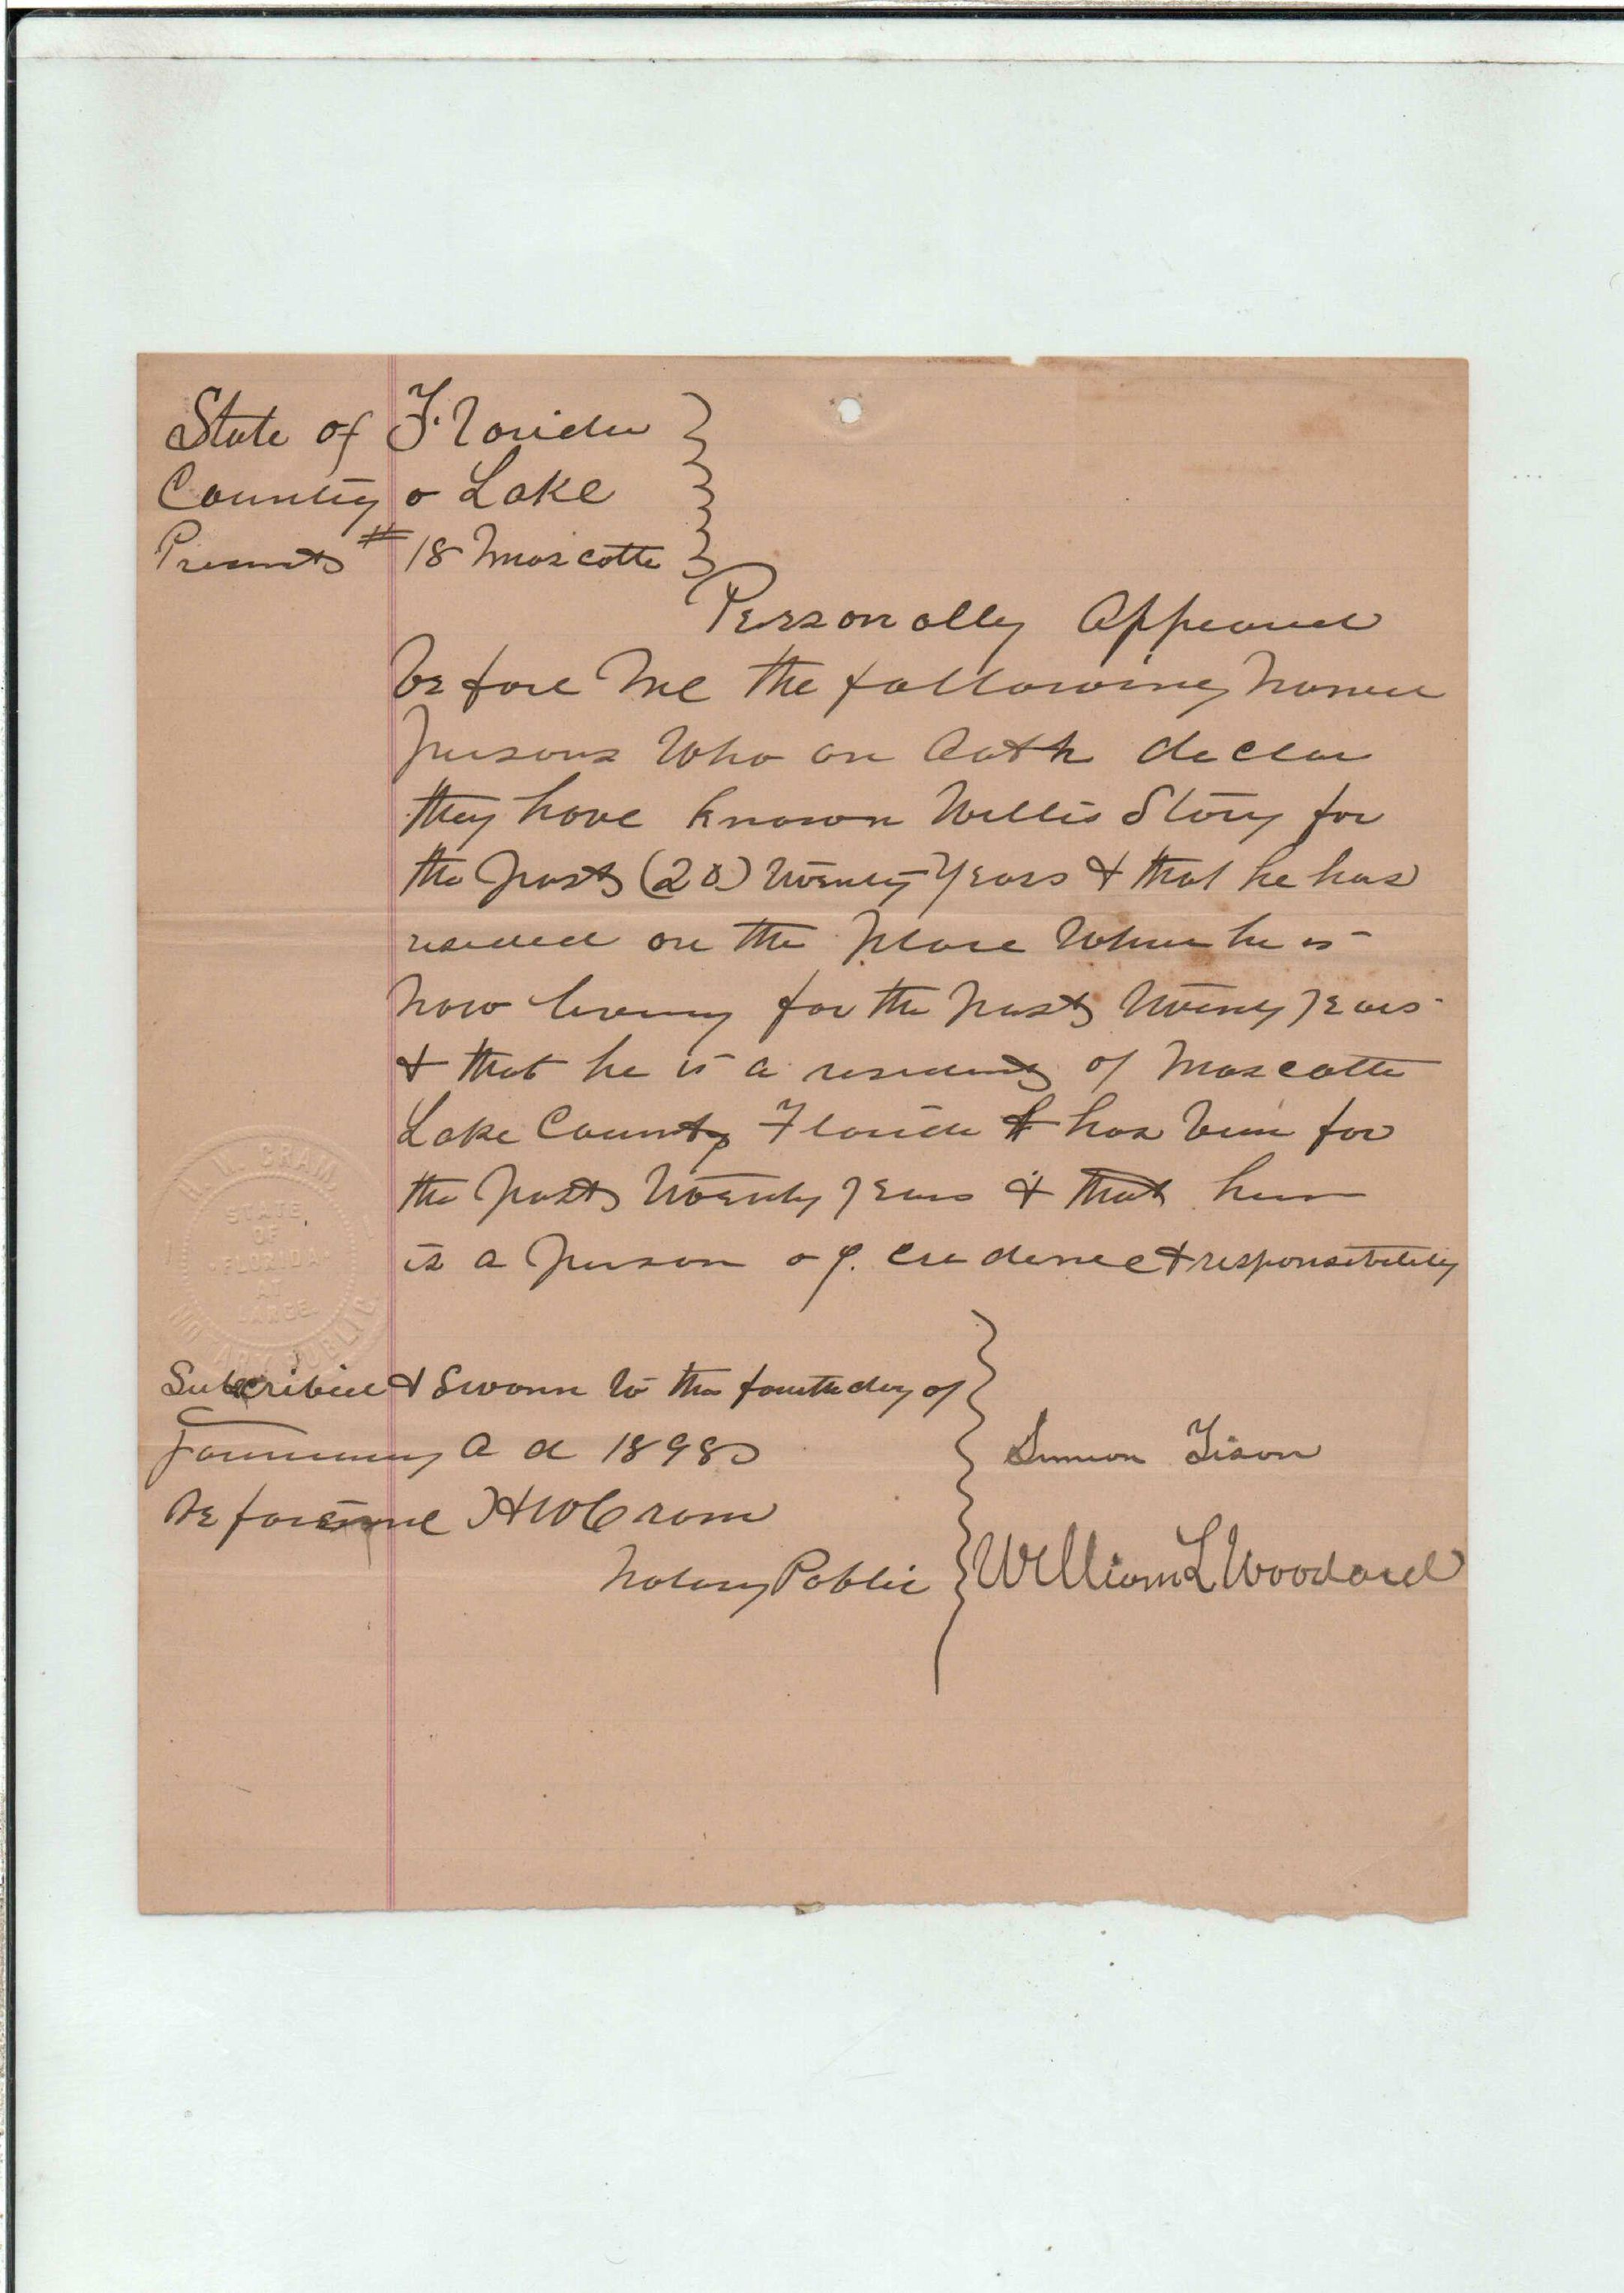 State of Florida
County o Lake
Precinct # 18 Mascotte
Personally Appeared
before Me the following Named
persons Who on Oath declar
they have known Willis Story for
the past (20) twenty Years & that he has
resided on the place Where he is
now living for the past twenty years
& that he is a resident of Mascotte
Lake County Florida & has been for
the past twenty years & that
is a person of credence & responsibility
H. W. CRAM.
STATE
OF
FLORIDA
AT
LARGE.
NOTARY PUBLIC
Subscribed & Sworn to this fourth day of
January A d 1898
Before me H W Cram
Notary Public
Simeon Tison
William L Woodard